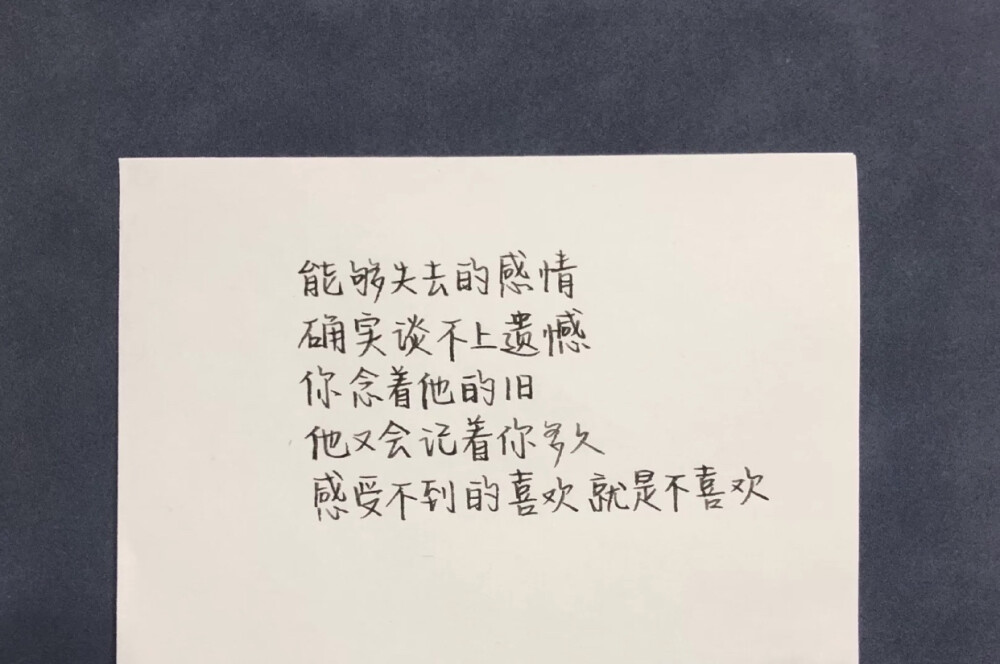 能够失去的感情
确实谈不上遗憾
你念着他的旧
他又会记着你多久
感受不到的喜欢就是不喜欢